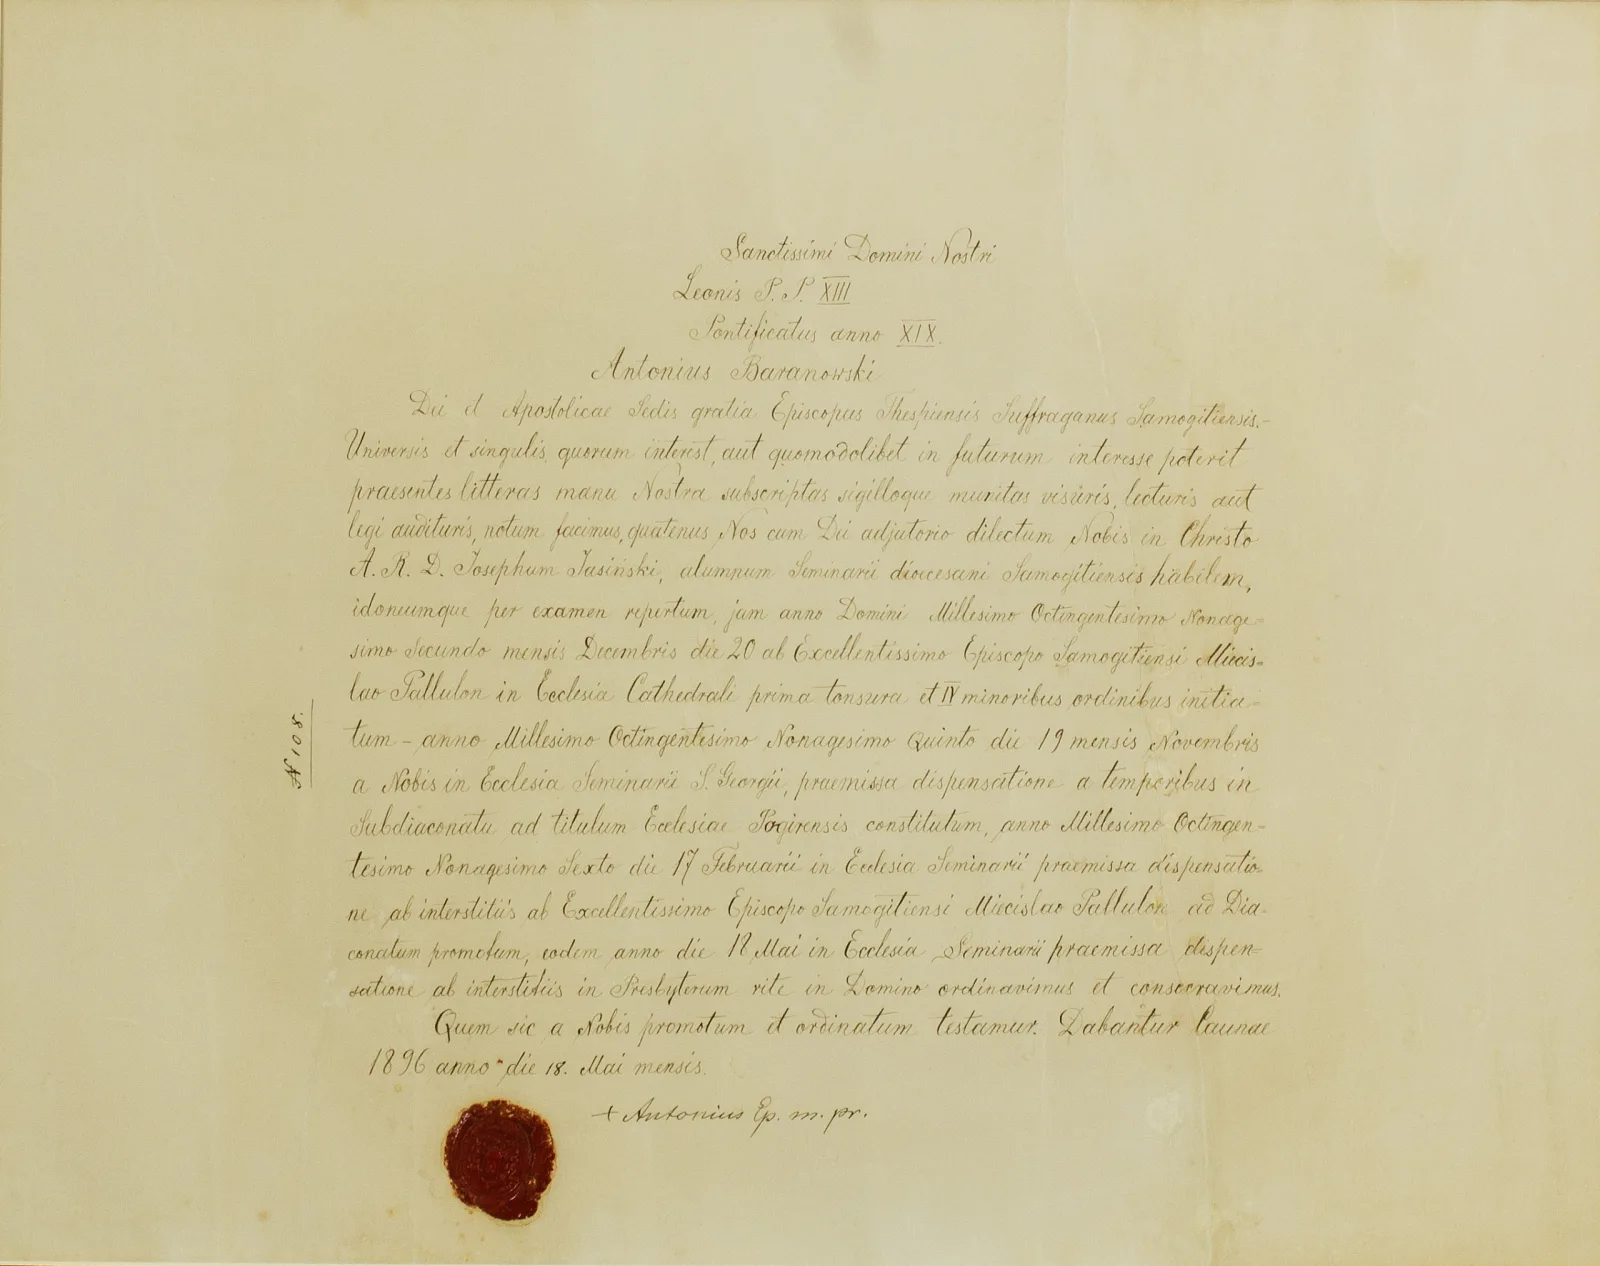 Sanctissimi Domini Nostri
Leonis P. P. XIII
Pontificatus anno XIX.
Antonius Baranowski
Dei et Apostolicae Sedis gratia Episcopus Thespiensis Suffraganus Samogitiensis.-
Universis et singulis, quorum interest, aut quomodolibet in futurum interesse poterit
praesentes litteras manu Nostra subscriptas sigilloque munitas visuris, lecturis aut
legi audituris, notum facimus, quatenus Nos cum Dei adjutorio dilectum Nobis in Christo
A. R. D. Josephum Jasiński, alumnum Seminarii dioecesani Samogitiensis habilem,
idoneumque per examen repertum, jam anno Domini Millesimo Octingentesimo Nonage=
simo Secundo mensis Decembris die 20 ab Excellentissimo Episcopo Samogitiensi Miecis=
lao Pallulon in Ecclesia Cathedrali prima tonsura et IV minoribus ordinibus initia=
tum - anno Millesimo Octingentesimo Nonagesimo Quinto die 19 mensis Novembris
a Nobis in Ecclesia Seminarii S. Georgii, praemissa dispensatione a temporibus in
Subdiaconatu ad titulum Ecclesiae Pogirensis constitutum, anno Millesimo Octingen=
tesimo Nonagesimo Sexto die 17 Februarii in Ecclesia Seminarii praemissa dispensatio
ne ab interstitiis ab Excellentissimo Episcopo Samogitiensi Miecislao Pallulon ad Dia-
conatum promotum, eodem anno die 18 Mai in Ecclesia Seminarii praemissa dispen=
satione ab interstitiis in Presbyterum rite in Domino ordinavimus et consecravimus.
Quem sic a Nobis promotum et ordinatum testamur. Dabantur Caunae
1896 anno die 18. Mai mensis.
+ Antonius Ep. m. pr.
N 108.